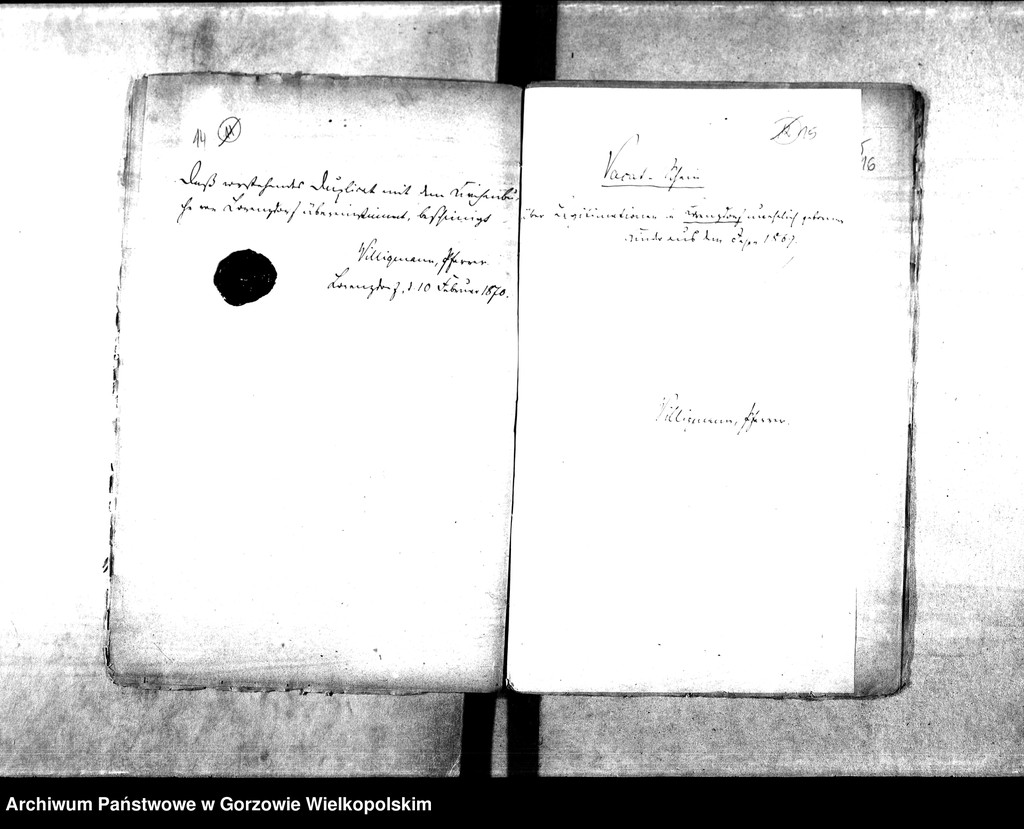 14
Daß vorstehendes Duplicat mit dem Kirchenbu-
che von Lorenzdorf übereinstimmt, bescheinigt
Willigmann, Pfarrer
Lorenzdorf, d. 10 Februar 1870.
15
16
Vacat-Schein
über Legitimationen in Lorenzdorf unehelich geborener
Kinder aus dem Jahre 1869.
Willigmann, Pfarrer.
Archiwum Państwowe w Gorzowie Wielkopolskim